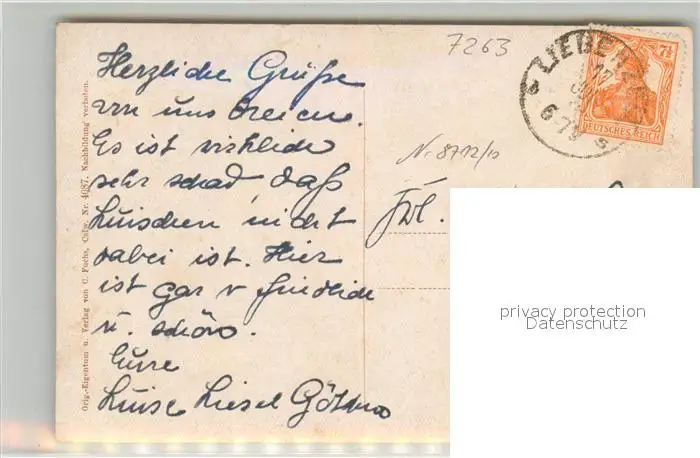 Herzliche Grüße
von uns Dreien.
Es ist wirklich
sehr schad daß
Luischen nicht
dabei ist. Hier
ist gar friedlich
u. schön.
Eure
Luise Liesel
7263
Nr 8712/12
Frl.
LIEBENZELL
17
6-7 N
7½
DEUTSCHES REICH
Orig.-Eigentum u. Verlag von C. Fuchs, Calw. Nr. 4087. Nachbildung verboten.
privacy protection
Datenschutz